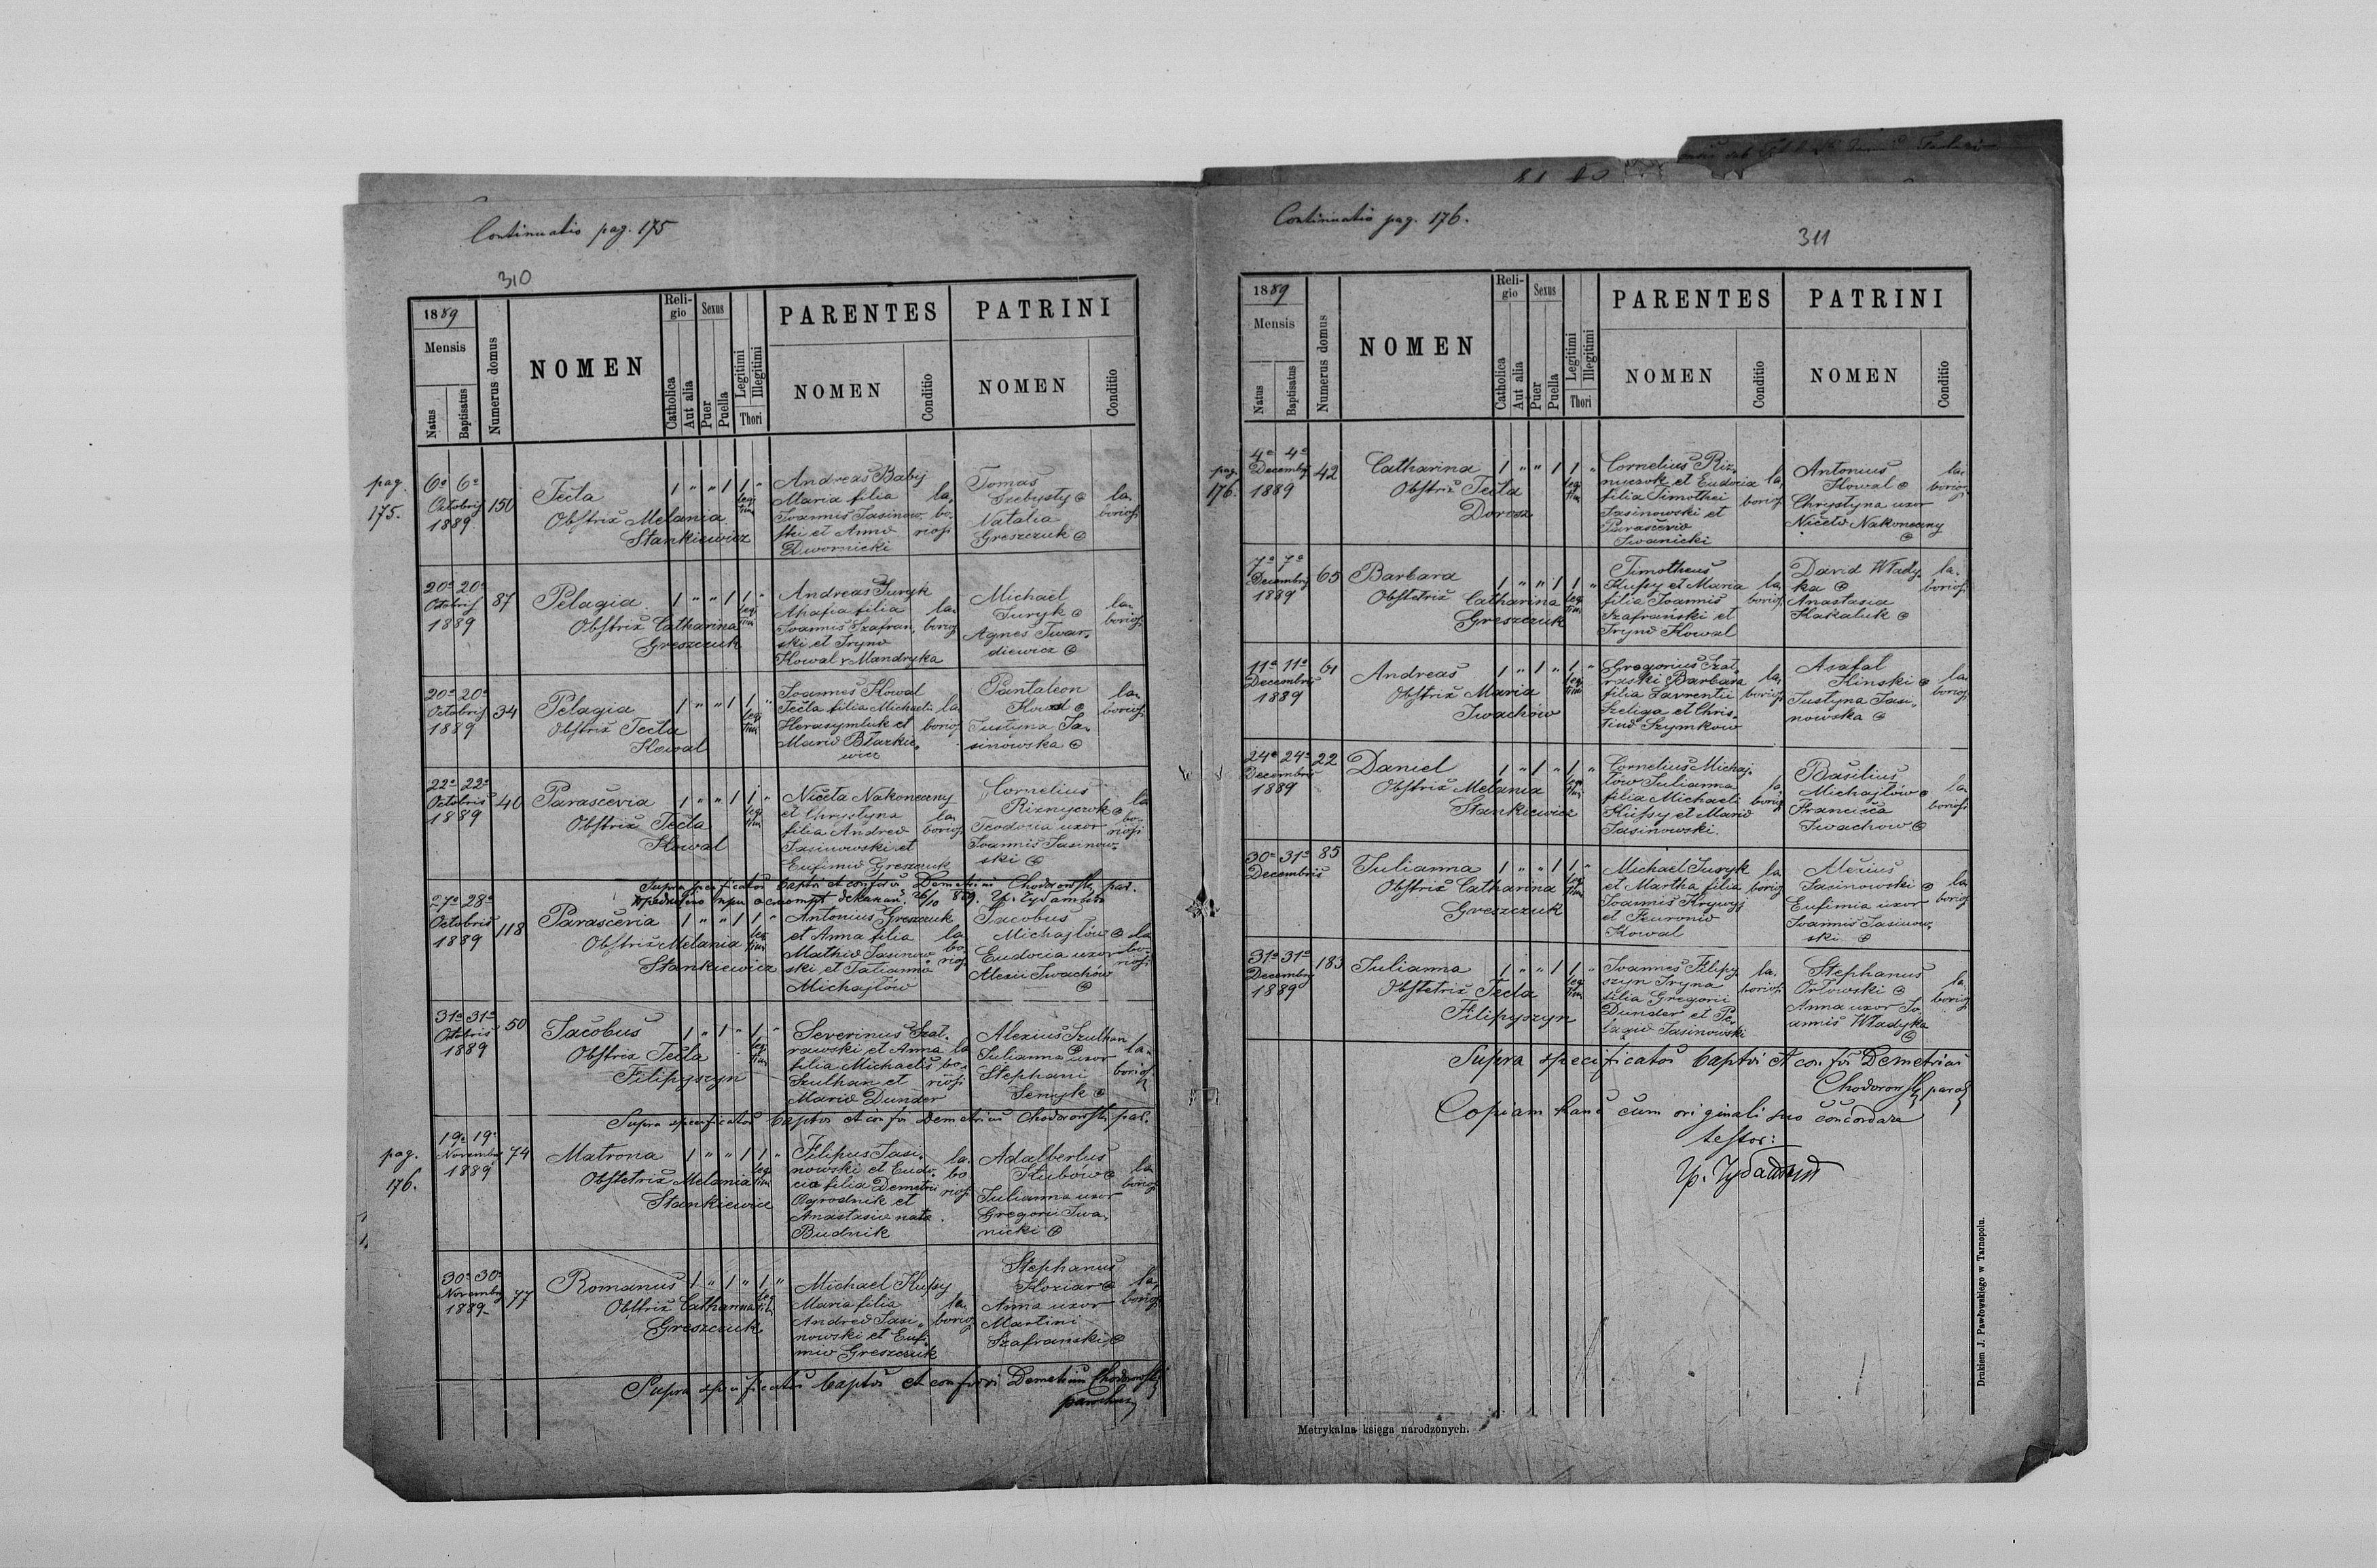 Continuatio pag. 175
310
1889
Mensis
Natus
Baptisatus
Numerus domus
NOMEN
Religio
Catholica
Aut alia
Sexus
Puer
Puella
Legitimi
Illegitimi
Thori
PARENTES
NOMEN
Conditio
PATRINI
NOMEN
Conditio
pag. 175.
6a 6a
Octobris
1889
150
Tecla
Obstrix Melania
Stankiewicz
1 " " 1 1 "
legitimi
Andreas Babij
Maria filia
Joannis Jasinow-
ski et Anna
Dwornicki
la-
bo-
riosi
Tomas
Szebysty
Natalia
Greszczuk
la-
boriosi
20a 20a
Octobris
1889
87
Pelagia
Obstrix Catharina
Greszczuk
1 " " 1 1 "
Andreas Juryk
Ahafia filia
Joannis Szafran-
ski et Iryna
Kowal v Mandryka
la-
boriosi
Michael
Juryk
Agnes Twar-
diewicz
la-
boriosi
20a 20a
Octobris
1889
34
Pelagia
Obstrix Tecla
Kowal
1 " " 1 1 "
Joannes Kowal
Tecla filia Michaeli
Herasymluk et
Maria Błazkie-
wicz
la-
boriosi
Pantaleon
Kowal
Justyna Ja-
sinowska
la-
boriosi
22a 22a
Octobris
1889
40
Parascevia
Obstrix Tecla
Kowal
1 " " 1 1 "
Niceta Nakoneczny
et Chrystyna
filia Andreæ
Jasinowski et
Eufimia Greszczuk
la-
boriosi
Cornelius
Riznyczok
Teodora uxor
Joannis Jasinow-
ski
la-
bo-
riosi
Supra specificatos baptisavi et confirmavi Demetrius Chodorowski par.
27a 28a
Octobris
1889
118
Parascevia
Obstrix Melania
Stankiewicz
1 " " 1 1 "
Antonius Greszczuk
et Anna filia
Mathiæ Jasinow-
ski et Tatianna
Michajlów
la-
bo-
riosi
Jacobus
Michajlów
Eudocia uxor
Alexii Iwachów
la-
bo-
riosi
31a 31a
Octobris
1889
50
Jacobus
Obstrix Tecla
Filipyszyn
1 " 1 " 1 "
Severinus Szat-
rawski et Anna
filia Michaelis
Szulhan et
Maria Dunder
la-
bo-
riosi
Alexius Szulhan
Julianna uxor
Stephani
Senyk
la-
boriosi
Supra specificatos baptisavi et confirmavi Demetrius Chodorowski par.
pag.
176.
19a 19a
Novembris
1889
74
Matrona
Obstetrix Melania
Stankiewicz
1 " " 1 1 "
Filipus Jasi-
nowski et Eudo-
cia filia Demetrii
Ogrodnik et
Anastasia nata
Budnik
la-
bo-
riosi
Adalbertus
Hubów
Julianna uxor
Gregorii Iwa-
nicki
la-
boriosi
30a 30a
Novembris
1889
77
Romanus
Obstrix Catharina
Greszczuk
1 " 1 " 1 "
Michael Kufsy
Maria filia
Andreæ Jasi-
nowski et Eufi-
mia Greszczuk
la-
boriosi
Stephanus
Koziar
Anna uxor
Martini
Szafranski
la-
boriosi
Supra specificatos baptisavi et confirmavi Demetrius Chodorowski
parochus
Continuatio pag. 176.
311
1889
Mensis
Natus
Baptisatus
Numerus domus
NOMEN
Religio
Catholica
Aut alia
Sexus
Puer
Puella
Legitimi
Illegitimi
Thori
PARENTES
NOMEN
Conditio
PATRINI
NOMEN
Conditio
pag.
176.
4a 4a
Decembris
1889
42
Catharina
Obstrix Tecla
Dorosz
1 " " 1 1 "
Cornelius Riz-
nyczok et Eudocia
filia Timothei
Jasinowski et
Parascevia
Iwanicki
la-
boriosi
Antonius
Kowal
Chrystyna uxor
Niceta Nakoneczny
la-
boriosi
7a 7a
Decembris
1889
65
Barbara
Obstetrix Catharina
Greszczuk
1 " " 1 1 "
Timotheus
Kufsy et Maria
filia Joannis
Szafrański et
Iryna Kowal
la-
boriosi
David Włady-
ka
Anastasia
Kakaluk
la-
boriosi
11a 11a
Decembris
1889
61
Andreas
Obstrix Maria
Iwachów
1 " 1 " 1 "
Gregorius Szat-
raski Barbara
filia Laurentii
Szeliga et Chris-
tina Szymkow
la-
boriosi
Asafat
Hinski
Justyna Jasi-
nowska
la-
boriosi
24a 24a
Decembris
1889
22
Daniel
Obstrix Melania
Stankiewicz
1 " 1 " 1 "
Cornelius Michaj-
lów Julianna
filia Michaeli
Kufsy et Maria
Jasinowski.
la-
boriosi
Basilius
Michajlów
Francisca
Iwachow
la-
boriosi
30a 31a
Decembris
85
Julianna
Obstrix Catharina
Greszczuk
1 " " 1 1 "
Michael Juryk
et Martha filia
Joannis Krywyj
et Feuronia
Kowal
la-
boriosi
Alexius
Jasinowski
Eufimia uxor
Joannis Jasinow-
ski
la-
boriosi
31a 31a
Decembris
1889
183
Julianna
Obstetrix Tecla
Filipyszyn
1 " " 1 1 "
Joannes Filipy-
szyn Iryna
filia Gregorii
Dunder et Pe-
lagia Jasinowski
la-
boriosi
Stephanus
Orłowski
Anna uxor Jo-
annis Władyka
la-
boriosi
Supra specificatos baptisavi et confirmavi Demetrius
Chodorowski paroch
Copiam hanc cum originali suo concordare
testor:
Metrykalna księga narodzonych.
Drukiem J. Pawłowskiego w Tarnopolu.